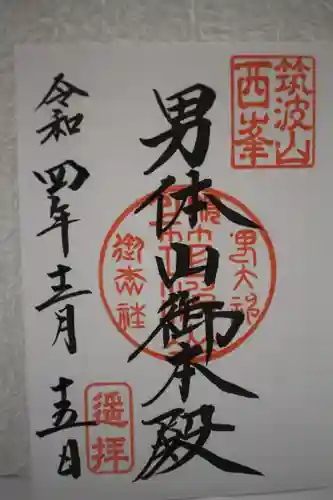 筑波山
西峯
男体山御本殿
令和四年十二月十五日
遥拝